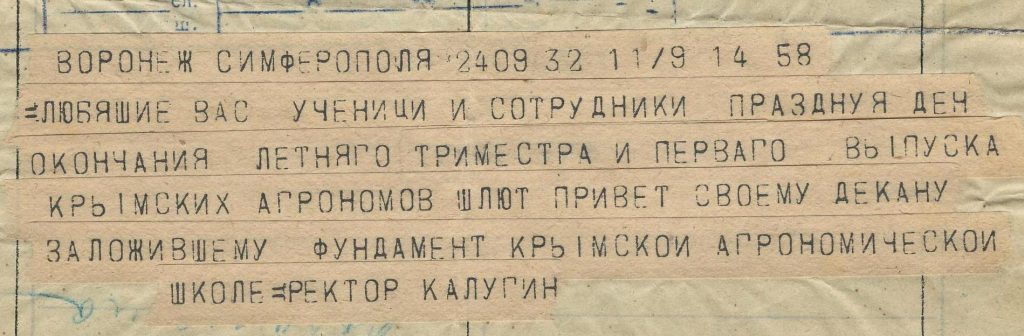 ел.
ш.
ВОРОНЕЖ СИМФЕРОПОЛЯ 2409 32 11/9 14 58
=ЛЮБЯШИЕ ВАС УЧЕНИЦИ И СОТРУДНИКИ ПРАЗДНУЯ ДЕН
ОКОНЧАНИЯ ЛЕТНЯГО ТРИМЕСТРА И ПЕРВАГО ВЫПУСКА
КРЫМСКИХ АГРОНОМОВ ШЛЮТ ПРИВЕТ СВОЕМУ ДЕКАНУ
ЗАЛОЖИВШЕМУ ФУНДАМЕНТ КРЫМСКОИ АГРОНОМИЧЕСКОИ
ШКОЛЕ=РЕКТОР КАЛУГИН